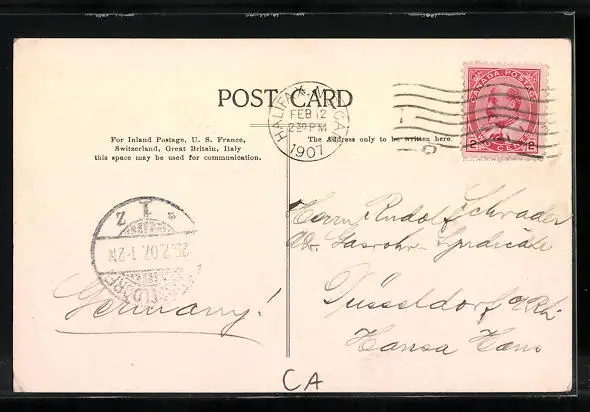 POST CARD
HALIFAX, N.S. CAN.
FEB 12
2 30 PM
1907
CANADA POSTAGE
2 2
TWO CENTS
For Inland Postage, U. S. France,
Switzerland, Great Britain, Italy
this space may be used for communication.
The Address only to be written here.
Herrn Rudolf Schrader
Gasrohr-Syndicate
Düsseldorf a/Rh.
Hansa Haus
Germany!
1 Z
25.2.07. 1-2N
CA